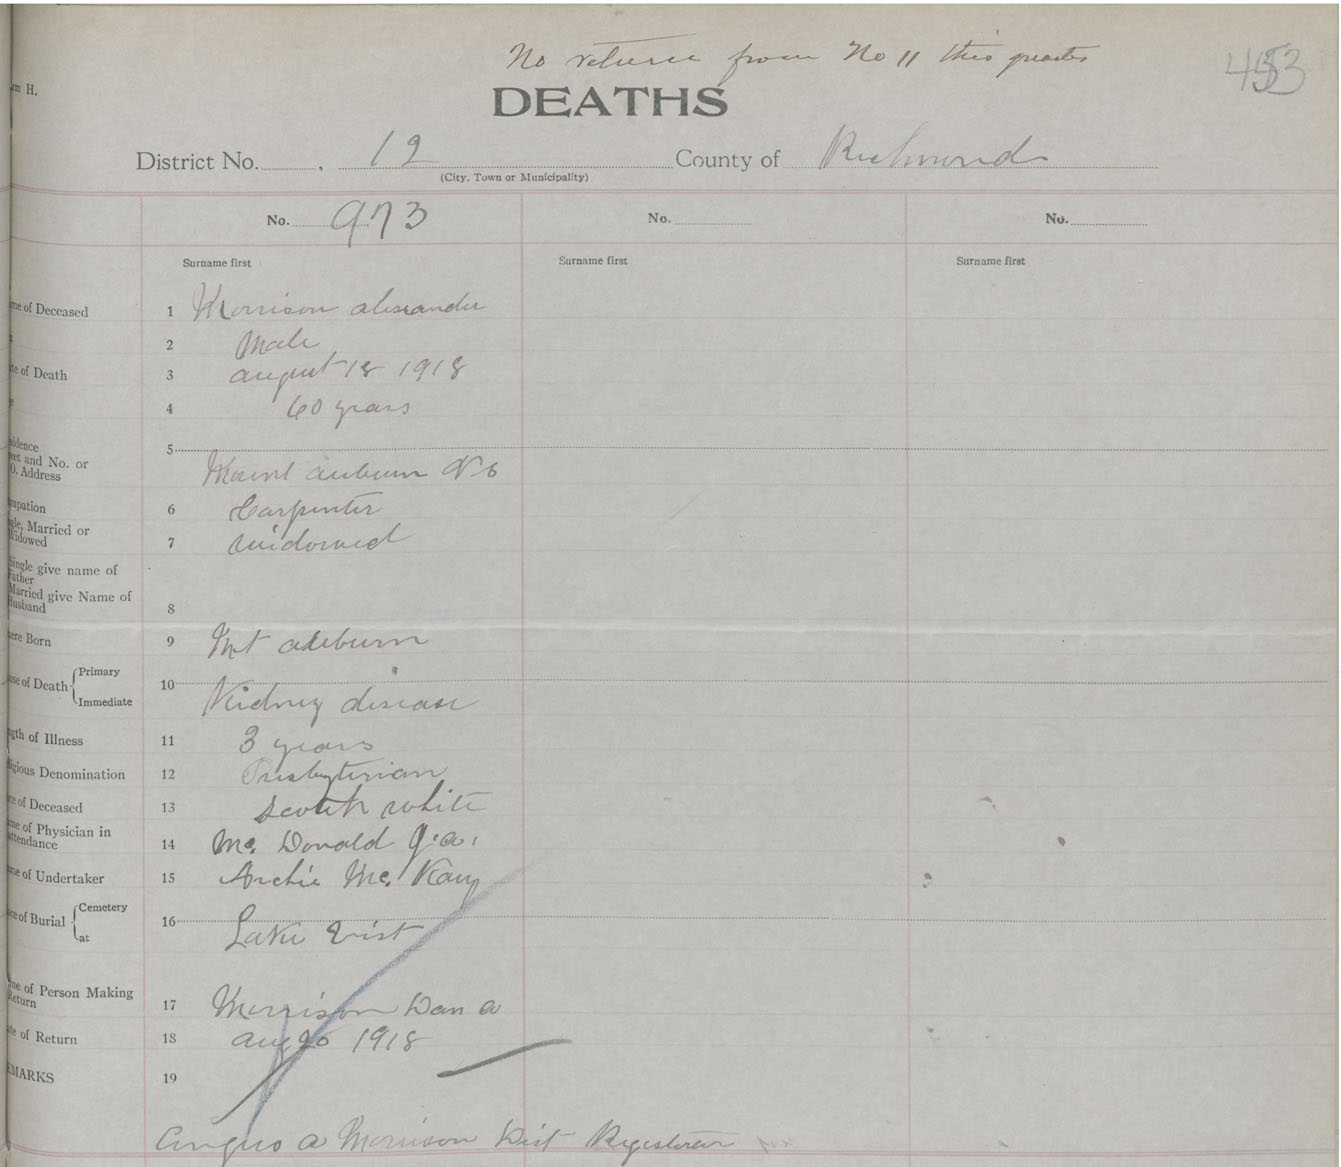 No return from No 11 this quarter
453
rm H.
DEATHS
District No. , 12 County of Richmond
(City, Town or Municipality)
No. 973 No. No.
Surname first Surname first Surname first
me of Deceased 1 Morrison alexander
2 Male
te of Death 3 august 18 1918
e 4 60 years
sidence
eet and No. or
O. Address
5 Mount auburn
upation 6 Carpenter
gle, Married or
Widowed
7 widowed
Single give name of
Father
Married give Name of
Husband
8
ere Born 9 Mt auburn
use of Death Primary
Immediate
10 Kidney disease
ngth of Illness 11 3 years
ligious Denomination 12 Presbyterian
ce of Deceased 13 scotch white
me of Physician in
ttendance
14 Mc. Donald J. a.
me of Undertaker 15 Archie Mc. Kay
ace of Burial Cemetery
at
16 Lake
me of Person Making
Return
17 Morrison Dan a
te of Return 18 aug 20 1918
EMARKS 19
Angus a Morrison Dist Registrar